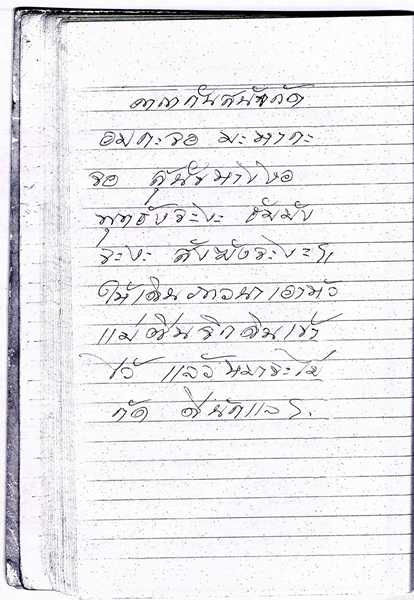 คาถากันสุนัขกัด
อมกะจอ มะมากะ
จอ สุนัขมาใหงอ
พุทธังระงะ ธัมมัง
ระงะ สังฆังระงะฯ
ให้เดินภาวนาเอาหัว
แม่ตีนจิกดินเข้า
ไว้ แลวันหมาจะไม่
กัด ดีนักแลฯ